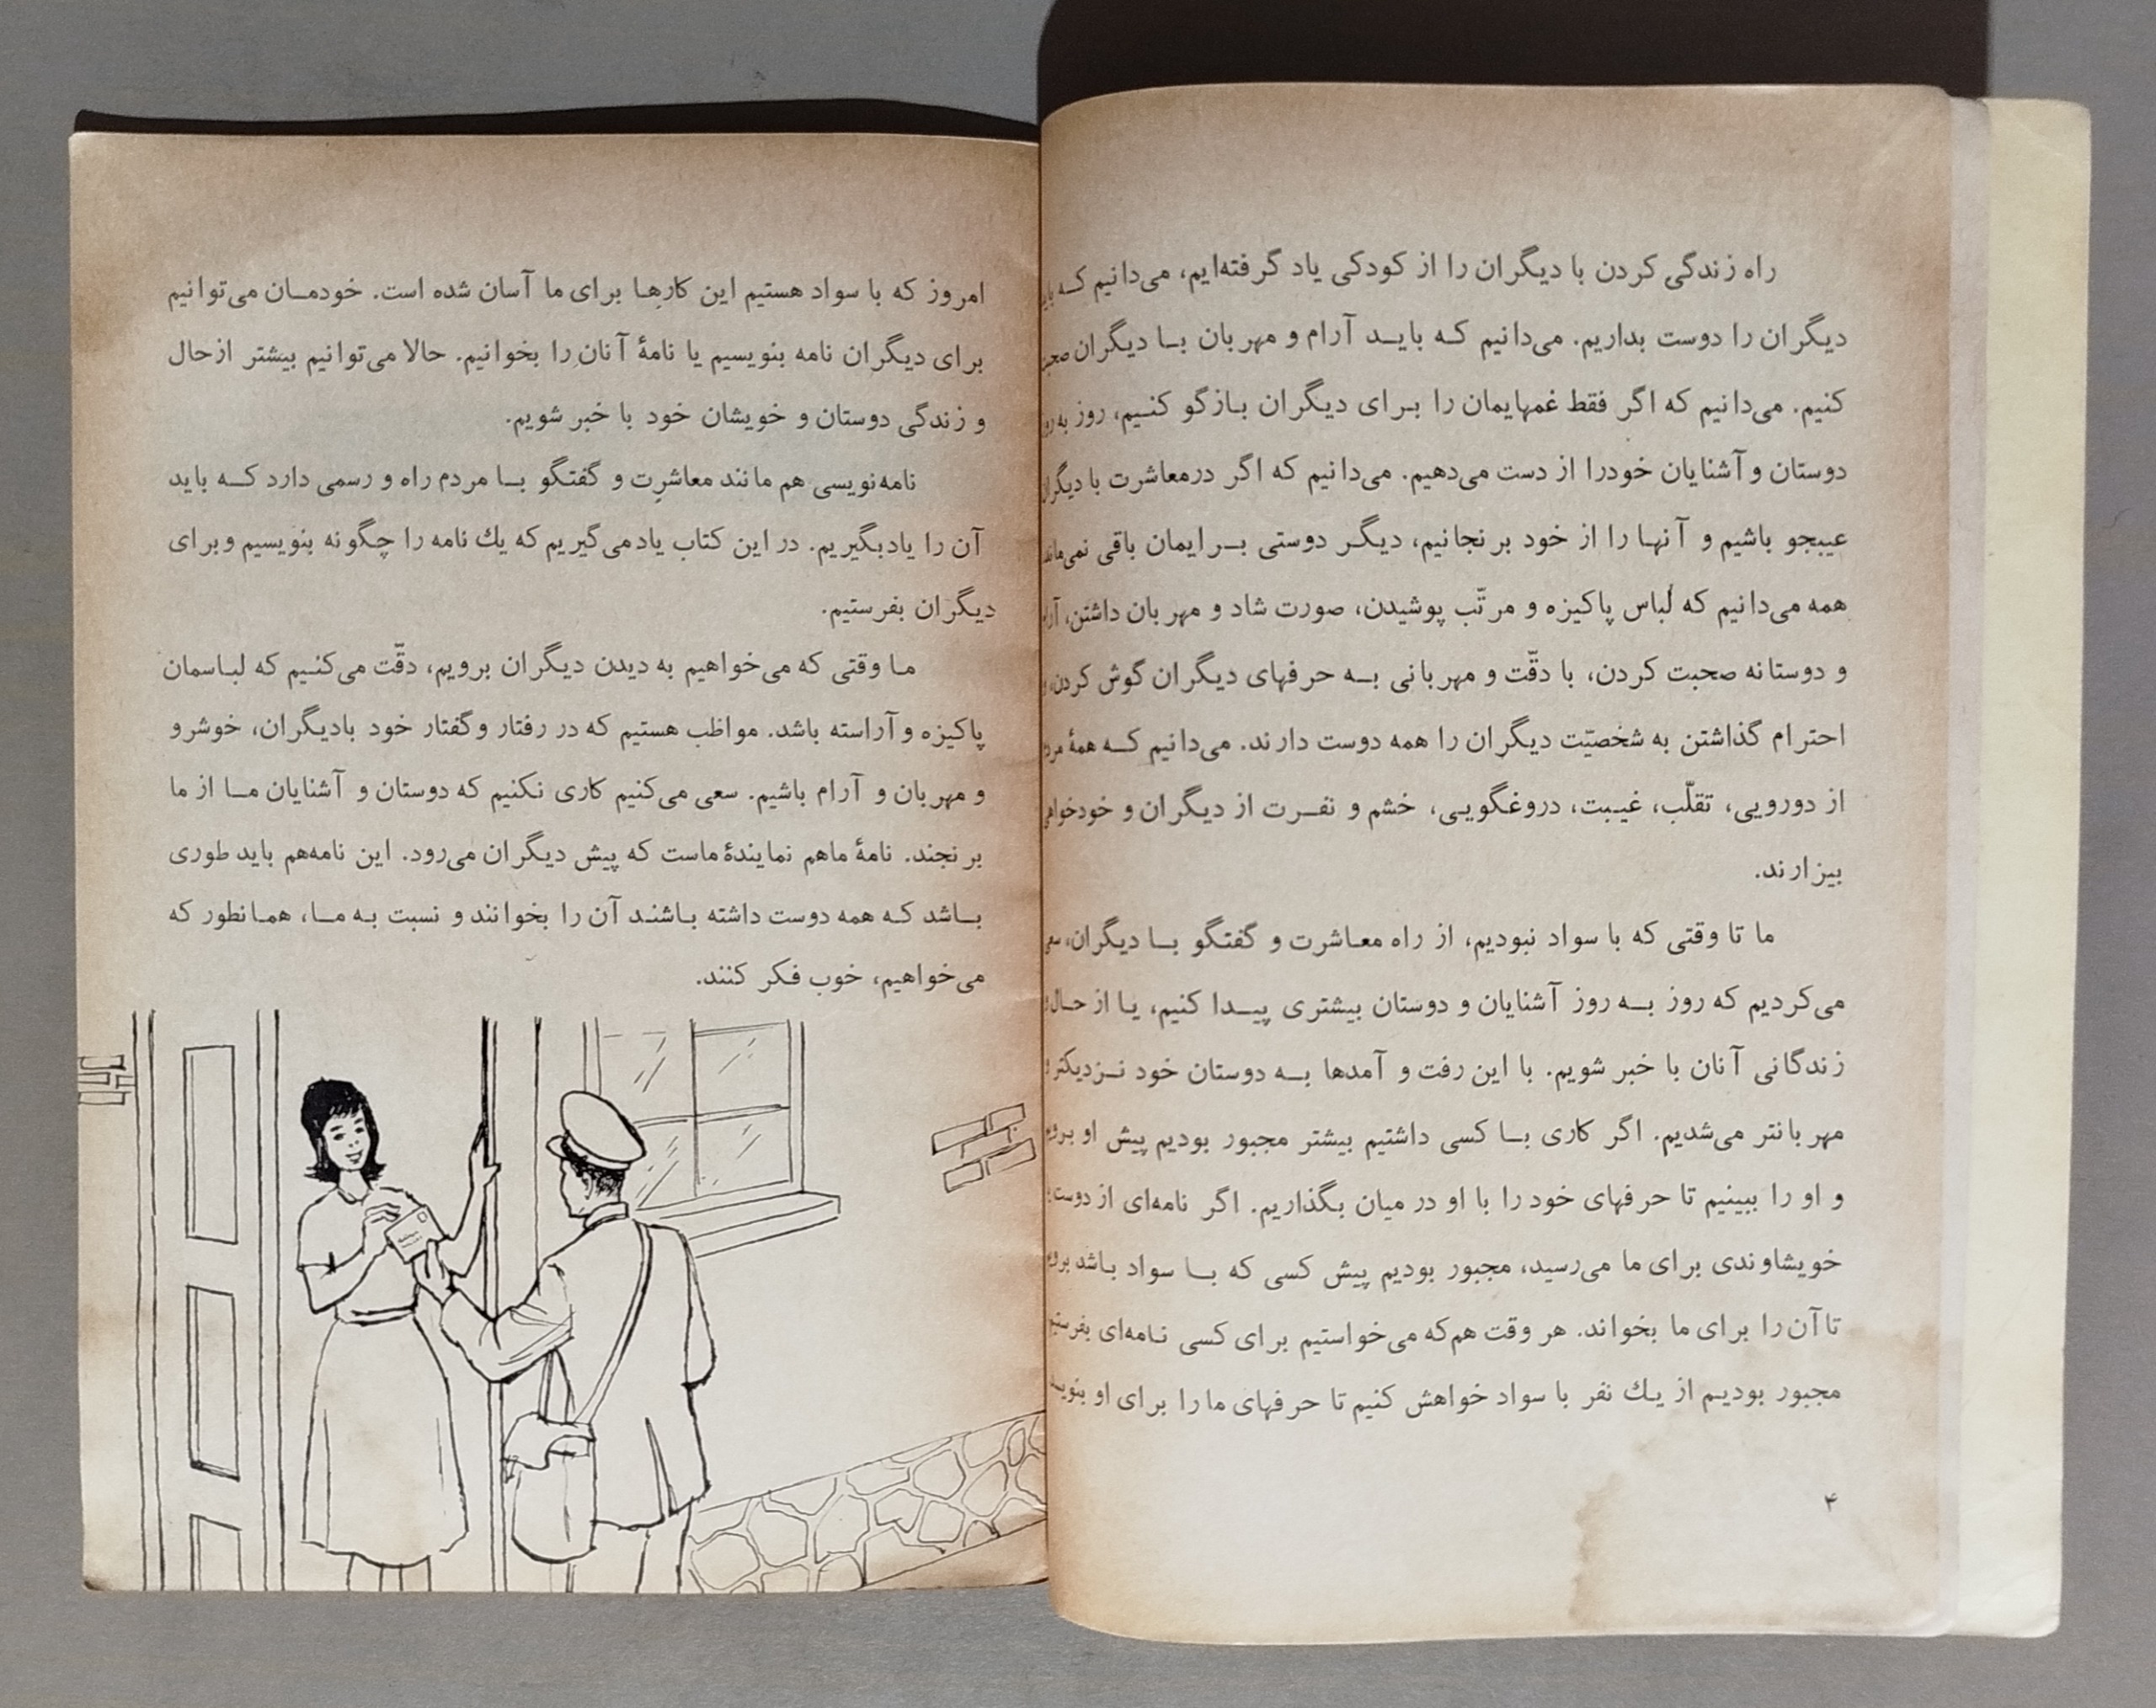 راه زندگی کردن با دیگران را از کودکی یاد گرفته‌ایم، می‌دانیم کـه
دیگران را دوست بداریم. می‌دانیم کـه بایـد آرام و مهربان بـا دیگران
کنیم. می‌دانیم که اگر فقط غمهایمان را بـرای دیگران بـازگو کنـیم، روز به
دوستان و آشنایان خودرا از دست می‌دهیم. می‌دانیم که اگر درمعاشرت با
عیبجو باشیم و آنهـا را از خود برنجانیم، دیگـر دوستی بـرایمان باقی
همه می‌دانیم که لباس پاکیزه و مرتّب پوشیدن، صورت شاد و مهربان داشتن،
و دوستانه صحبت کردن، با دقّت و مهربانی بـه حرفهای دیگران گوش کردن،
احترام گذاشتن به شخصیّت دیگران را همه دوست دارند. می‌دانیم کـه همهٔ
از دورویی، تقلّب، غیـبت، دروغگویـی، خشم و نفـرت از دیگران و
بیزارند.
ما تا وقتی که با سواد نبودیم، از راه معـاشرت و گفتگو بـا دیگران،
می‌کردیم که روز بـه روز آشنایان و دوستان بیشتری پیـدا کنیم، یـا از
زندگانی آنان با خبر شویم. با این رفت و آمدها بـه دوستان خود
مهربانتر می‌شدیم. اگر کاری بـا کسی داشتیم بیشتر مجبور بودیم پیش او
و او را ببینیم تا حرفهای خود را با او در میان بگذاریم. اگر نامه‌ای از
خویشاوندی برای ما می‌رسید، مجبور بودیم پیش کسی که بـا سواد بـاشد
تا آن را برای ما بخواند. هر وقت هم‌که می‌خواستیم برای کسی نـامه‌ای
مجبور بودیـم از یـك نفر با سواد خواهش کنیم تا حرفهای ما را برای او
۴
امروز که با سواد هستیم این کارهـا برای ما آسان شده است. خودمـان می‌توانیم
برای دیگران نامه بنویسیم یا نامهٔ آنان را بخوانیم. حالا می‌توانیم بیشتر ازحال
و زندگی دوستان و خویشان خود با خبر شویم.
نامه‌نویسی هم مانند معاشرت و گفتگو بـا مردم راه و رسمی دارد کـه باید
آن را یادبگیریم. در این کتاب یادمی‌گیریم که یك نامه را چگونه بنویسیم وبرای
دیگران بفرستیم.
مـا وقتی که می‌خواهیم به دیدن دیگران برویم، دقّت می‌کنـیم که لبـاسمان
پاکیزه و آراسته باشد. مواظب هستیم که در رفتار و گفتار خود بادیگران، خوشرو
و مهربان و آرام باشیم. سعی می‌کنیم کاری نکنیم که دوستان و آشنایان مـا از ما
برنجند. نامهٔ ماهم نمایندهٔ ماست که پیش دیگران می‌رود. این نامه‌هم باید طوری
بـاشد کـه همه دوست داشته بـاشند آن را بخوانند و نسبت بـه مـا، همـانطور که
می‌خواهیم، خوب فـکر کنند.